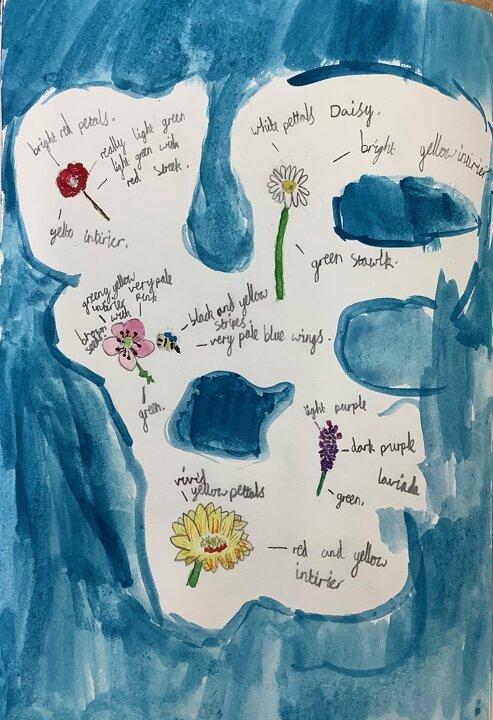 bright red petals.
really light green
light green with
red streek.
yello intirier.
white pettals
Daisy.
bright yellow intirier
green stawlk.
greeny yellow
intirier with
brown
seeds
very pale
pink
green.
black and yellow
stripes
very pale blue wings.
light purple
dark purple
lavinda
green.
vivid
yellow pettals
red and yellow
intirier